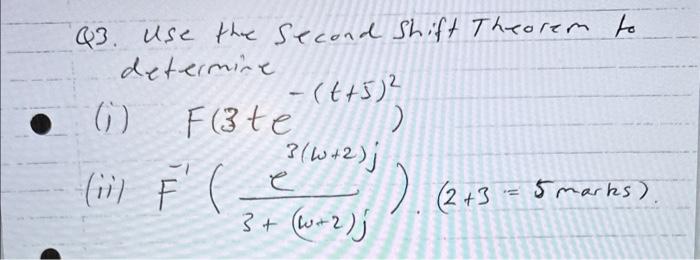 Q3. Use the Second Shift Theorem to
determine
(i) F(3te^{-(t+5)^2})
(ii) F^{-1}(e^{3(w+2)j} / 3+(w+2)j). (2+3 = 5 marks).